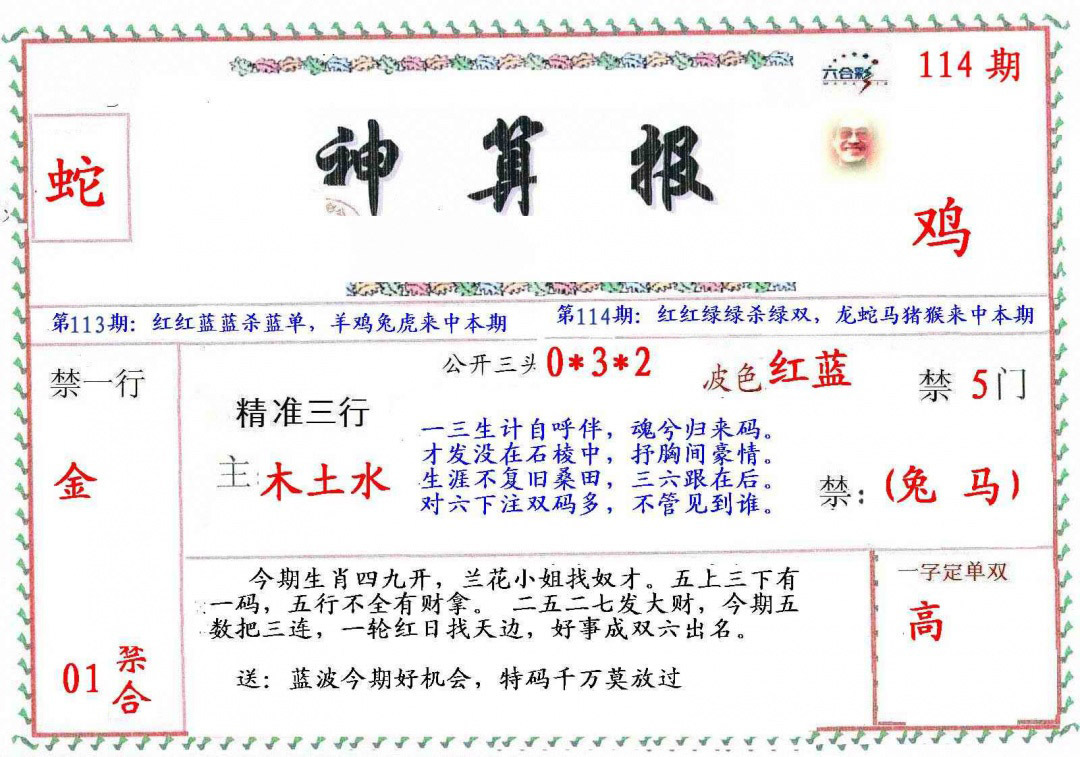 六合彩
114期
神算报
蛇
鸡
第113期：红红蓝蓝杀蓝单，羊鸡兔虎来中本期
第114期：红红绿绿杀绿双，龙蛇马猪猴来中本期
禁一行
公开三头0*3*2
波色红蓝
禁5门
精准三行
主：木土水
一三生计自呼伴，魂兮归来码。
才发没在石棱中，抒胸间豪情。
生涯不复旧桑田，三六跟在后。
对六下注双码多，不管见到谁。
金
禁：(兔 马)
今期生肖四九开，兰花小姐找奴才。五上三下有
一码，五行不全有财拿。 二五二七发大财，今期五
数把三连，一轮红日找天边，好事成双六出名。
送：蓝波今期好机会，特码千万莫放过
一字定单双
高
01禁合